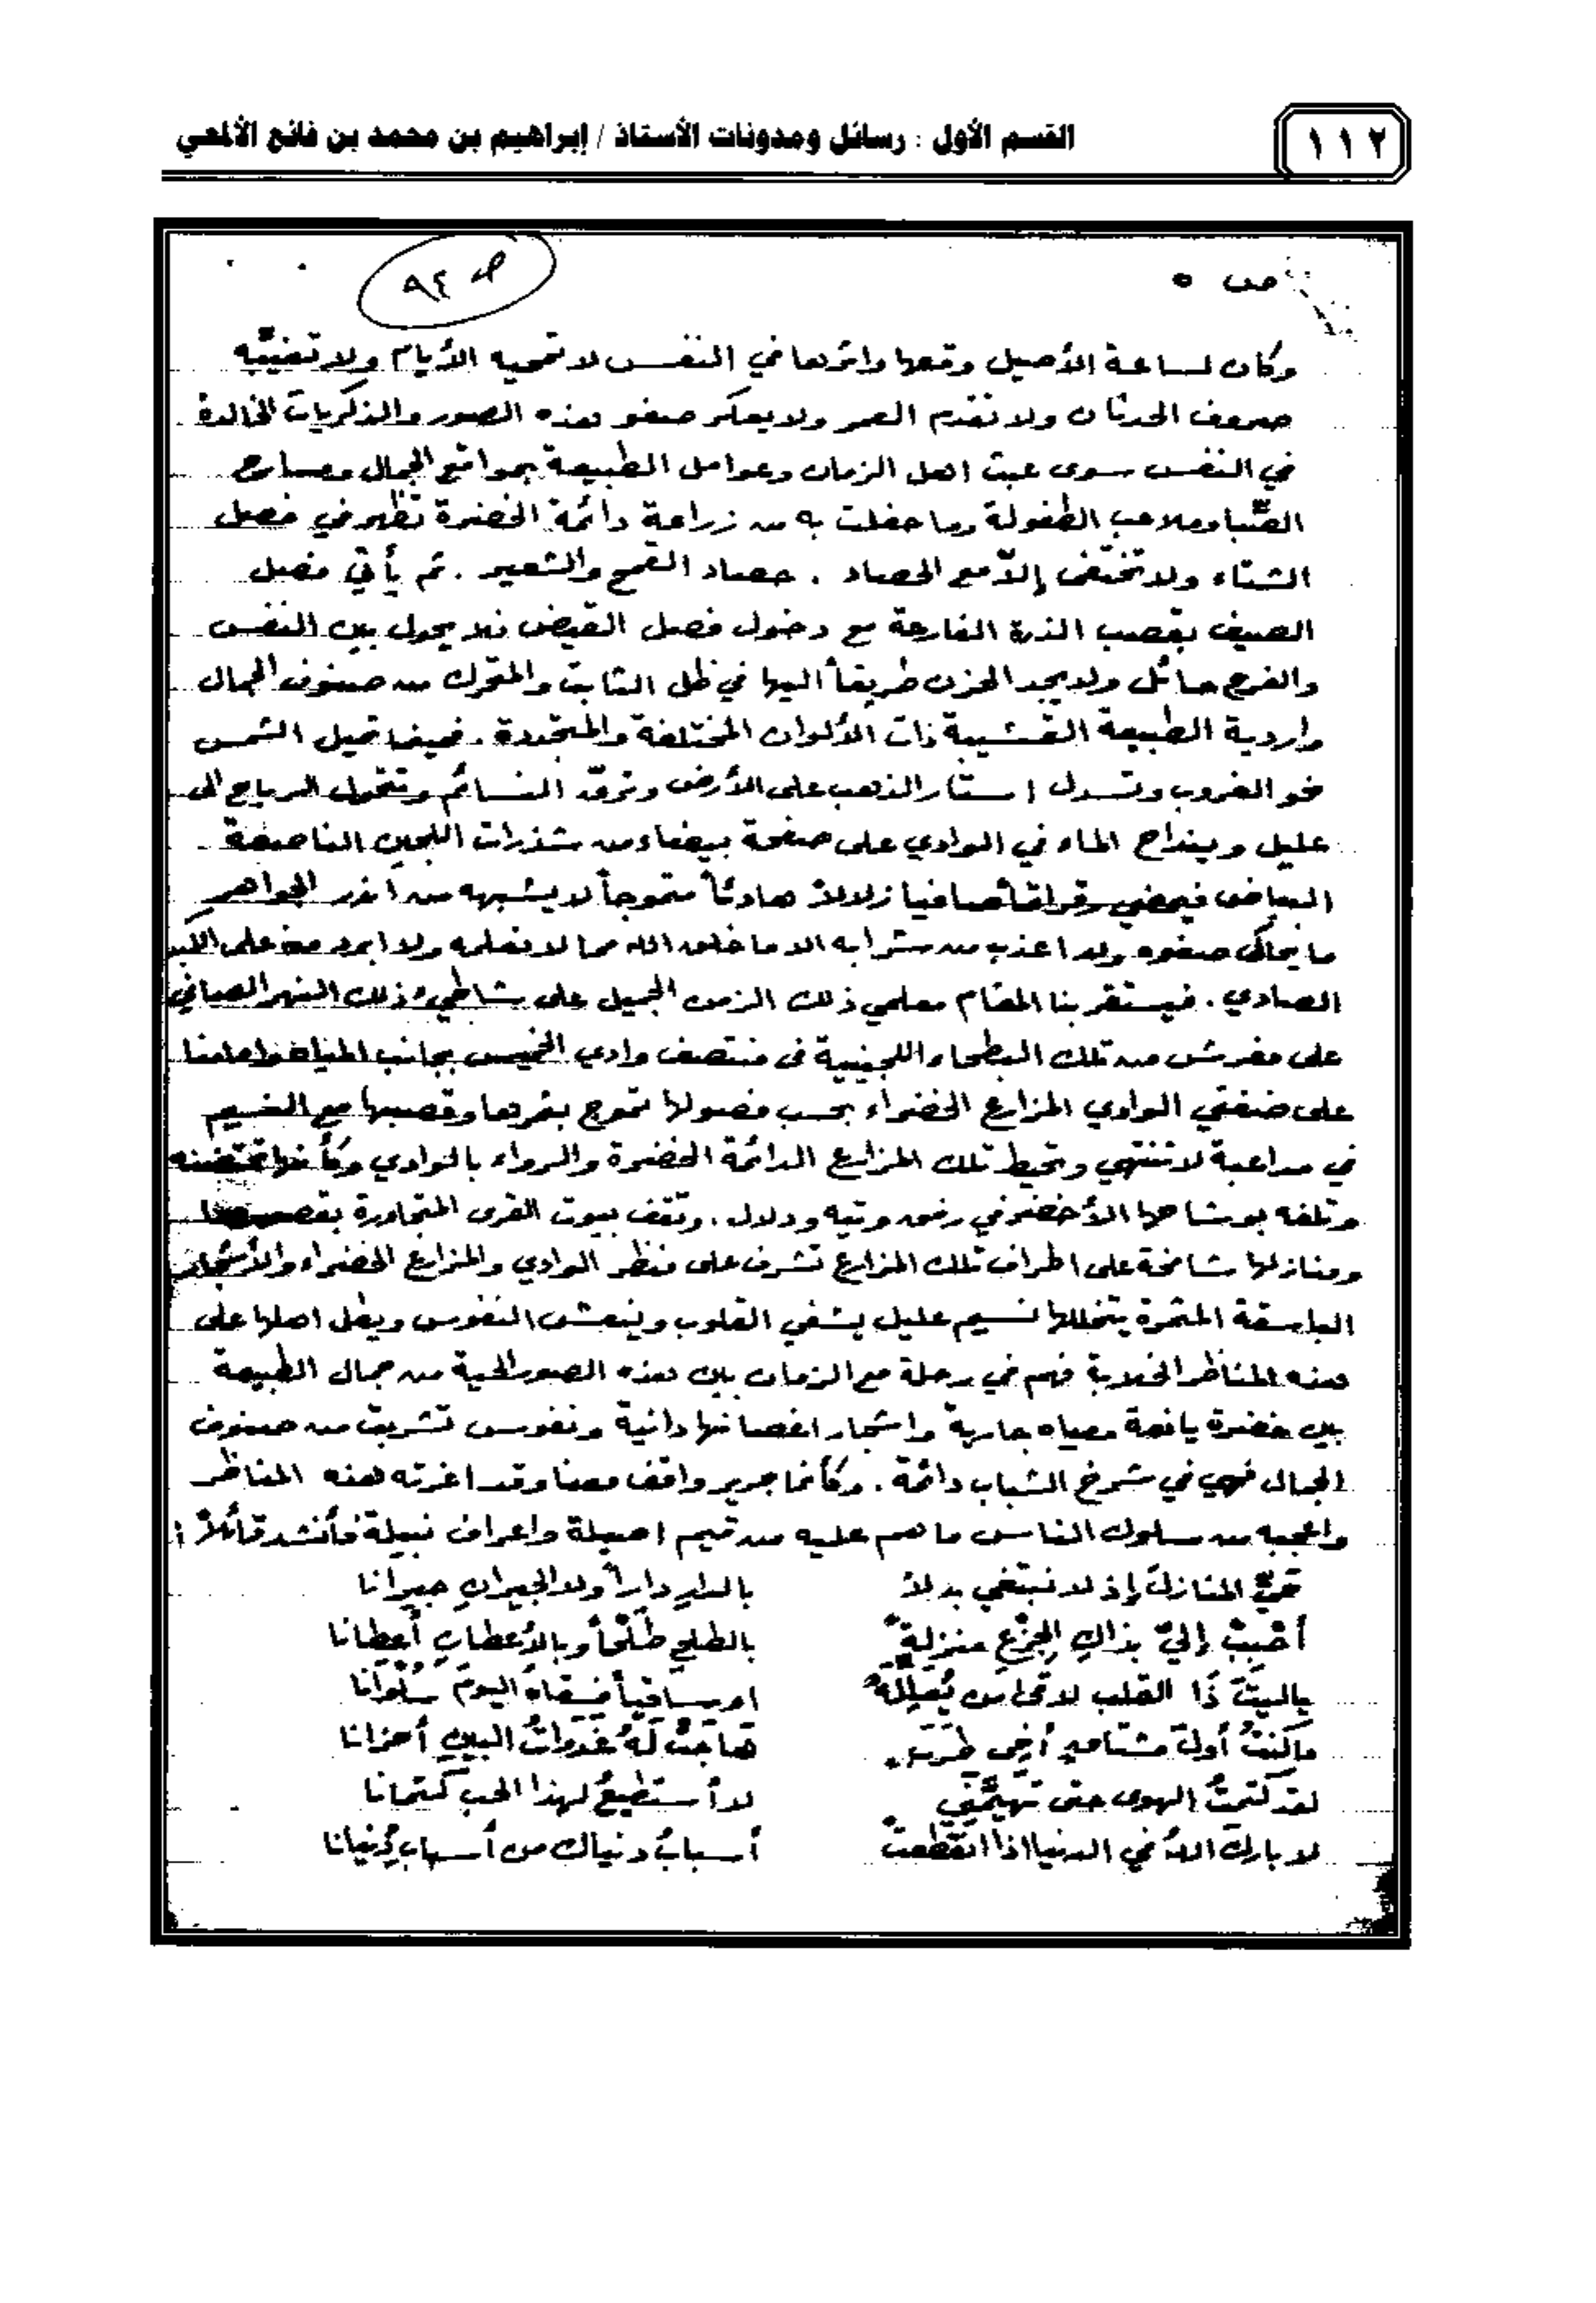 ١١٢
القسم الأول : رسائل ومدونات الأستاذ / إبراهيم بن محمد بن فائع الألمعي
ص ٥
ص ٩٢
وكان لساعة الأصيل وقعها واثرها في النفس لا تمحيه الأيام ولا تغيبّه
صروف الحدثان ولا تقدم العمر ولا يعكر صفو هذه الصور والذكريات الخالدة
في النفس سوى عبث اهل الزمان وعوامل الطبيعة بمواقع الجمال ومسارح
الصّبا وملاعب الطفولة وما حفلت به من زراعة دائمة الخضرة تظهر في فصل
الشتاء ولا تختفي إلاّ مع الحصاد . حصاد القمح والشعير . ثم يأتي فصل
الصيف بقصب الذرة الفارعة مع دخول فصل القيض فلا يحول بين النفس
والفرح حائل ولا يجد الحزن طريقاً اليها في ظل الثابت والمتحرك من صنوف الجمال
واردية الطبيعة القشيبة ذات الألوان المختلفة والمتجددة . فحينما تميل الشمس
نحو الغروب وتسدل استار الذهب على الأرض وترقّ النسائم وتتحول الرياح الى
عليل وينداح الماء في الوادي على صفحة بيضاء من شذرات اللجين الناصعة
البياض فيمضي رقراقاً صافيا زلالاً هادئاً متموجاً لا يشبهه من أندر الجواهر
ما يحاكى صفوه ولا اعذب من شرابه الا ما خلق الله مما لا نعلمه ولا ابرد منه على الكبد
الصادي . فيستقر بنا المقام معلمي ذلك الزمن الجميل على شاطيء ذلك النهر الصافي
على مفرش من تلك البطحاء اللجينية في منتصف وادي الخميس بجانب المياه وامامنا
على ضفتي الوادي المزارع الخضراء بحسب فصولها تموج بثمرها وقصبها مع النسيم
في مداعبة لا تنتهي وتحيط تلك المزارع الدائمة الخضرة والرواء بالوادي وكأنها تحتضنه
وتلفه بوشاحها الأخضر في رفق وتيه ودلال . وتقف بيوت القرى المتجاورة بقصورها
ومنازلها شامخة على اطراف تلك المزارع تشرف على منظر الوادي والمزارع الخضراء والأشجار
الباسقة المثمرة يتخللها نسيم عليل يشفي القلوب وينعش النفوس ويطل اهلها على
هذه المناظر الخلابة فهم في رحلة مع الزمان بين هذه الصور الحية من جمال الطبيعة
بين خضرة يانعة ومياه جارية واشجار اغصانها دانية ونفوس تشربت من صنوف
الجمال فهي في شرخ الشباب دائمة . وكأنما جرير واقف معنا وقد اغرته هذه المناظر
واعجبه من سلوك الناس ما هم عليه من قيم اصيلة واعراف نبيلة فأنشد قائلاً :
حيِّ المنازلَ إذ لا نبتغي بدلاً بالدارِ داراً ولا الجيرانِ جيرانا
أحْببْ إليّ بذاكِ الجزْعِ منزلةً بالطلحِ طلْحاً وبالأعطانِ أعطانا
ياليتَ ذا القلب لاقى من يُعلِّلهُ او ساقياً فسقاه اليومَ سُلوانا
ماكنتُ أولَ مشتاقٍ أخي طربٍ هاجتْ لهُ غدواتُ البينِ أحزانا
لقد كتمتُ الهوى حتى تهيّمني لا أستطيعُ لهذا الحب كتمانا
لا باركَ اللهُ في الدنيا اذا انقطعتْ أسبابُ دنياك من أسبابِ دُنيانا